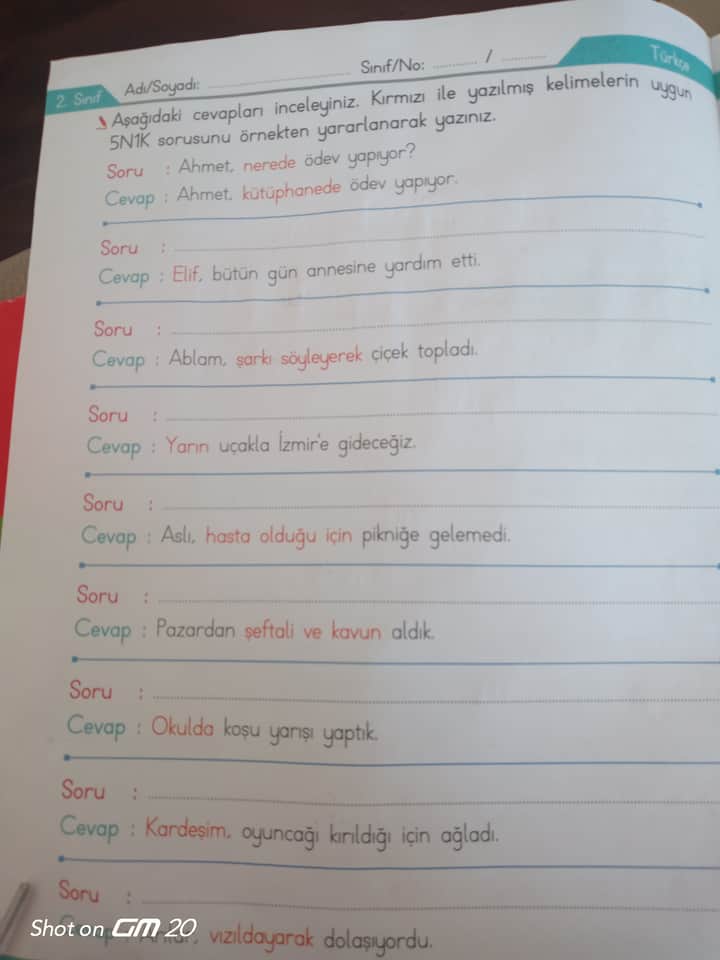 2. Sınıf Adı/Soyadı: Sınıf/No: / Türkçe
Aşağıdaki cevapları inceleyiniz. Kırmızı ile yazılmış kelimelerin uygun
5N1K sorusunu örnekten yararlanarak yazınız.
Soru : Ahmet, nerede ödev yapıyor?
Cevap : Ahmet, kütüphanede ödev yapıyor.
Soru :
Cevap : Elif, bütün gün annesine yardım etti.
Soru :
Cevap : Ablam, şarkı söyleyerek çiçek topladı.
Soru :
Cevap : Yarın uçakla İzmir'e gideceğiz.
Soru :
Cevap : Aslı, hasta olduğu için pikniğe gelemedi.
Soru :
Cevap : Pazardan şeftali ve kavun aldık.
Soru :
Cevap : Okulda koşu yarışı yaptık.
Soru :
Cevap : Kardeşim, oyuncağı kırıldığı için ağladı.
Soru :
Shot on GM 20
vızıldayarak dolaşıyordu.